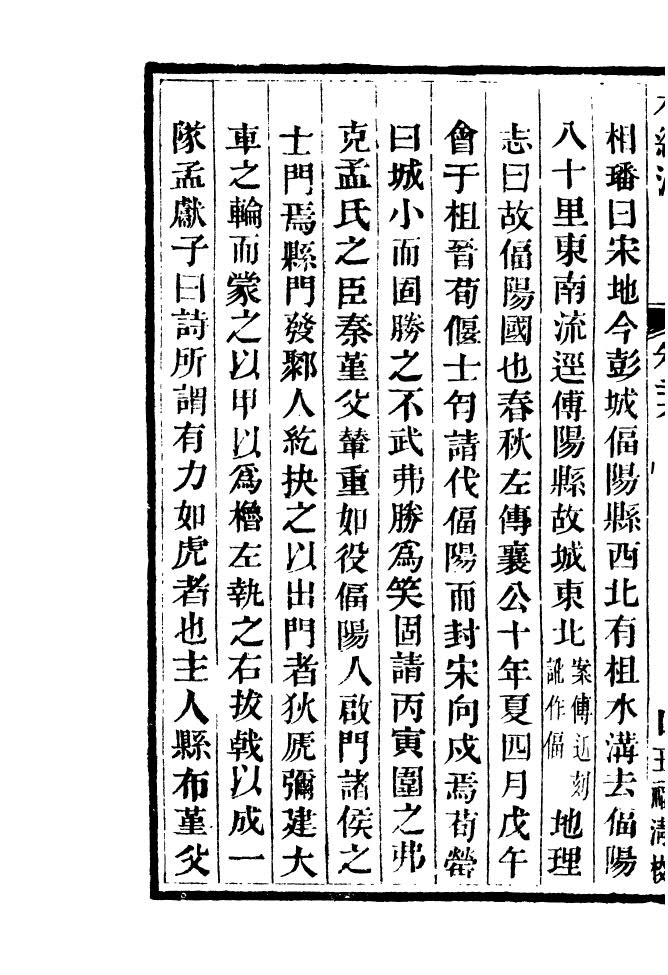 相璠曰宋地今彭城偪陽縣西北有柤水溝去偪陽
八十里東南流逕傅陽縣故城東北案傅近刻訛作偪地理
志曰故偪陽國也春秋左傳襄公十年夏四月戊午
會于柤晉荀偃士匄請伐偪陽而封宋向戌焉荀罃
曰城小而固勝之不武弗勝為笑固請丙寅圍之弗
克孟氏之臣秦堇父輦重如役偪陽人啟門諸侯之
士門焉縣門發郰人紇抉之以出門者狄虒彌建大
車之輪而蒙之以甲以為櫓左執之右拔戟以成一
隊孟獻子曰詩所謂有力如虎者也主人縣布堇父